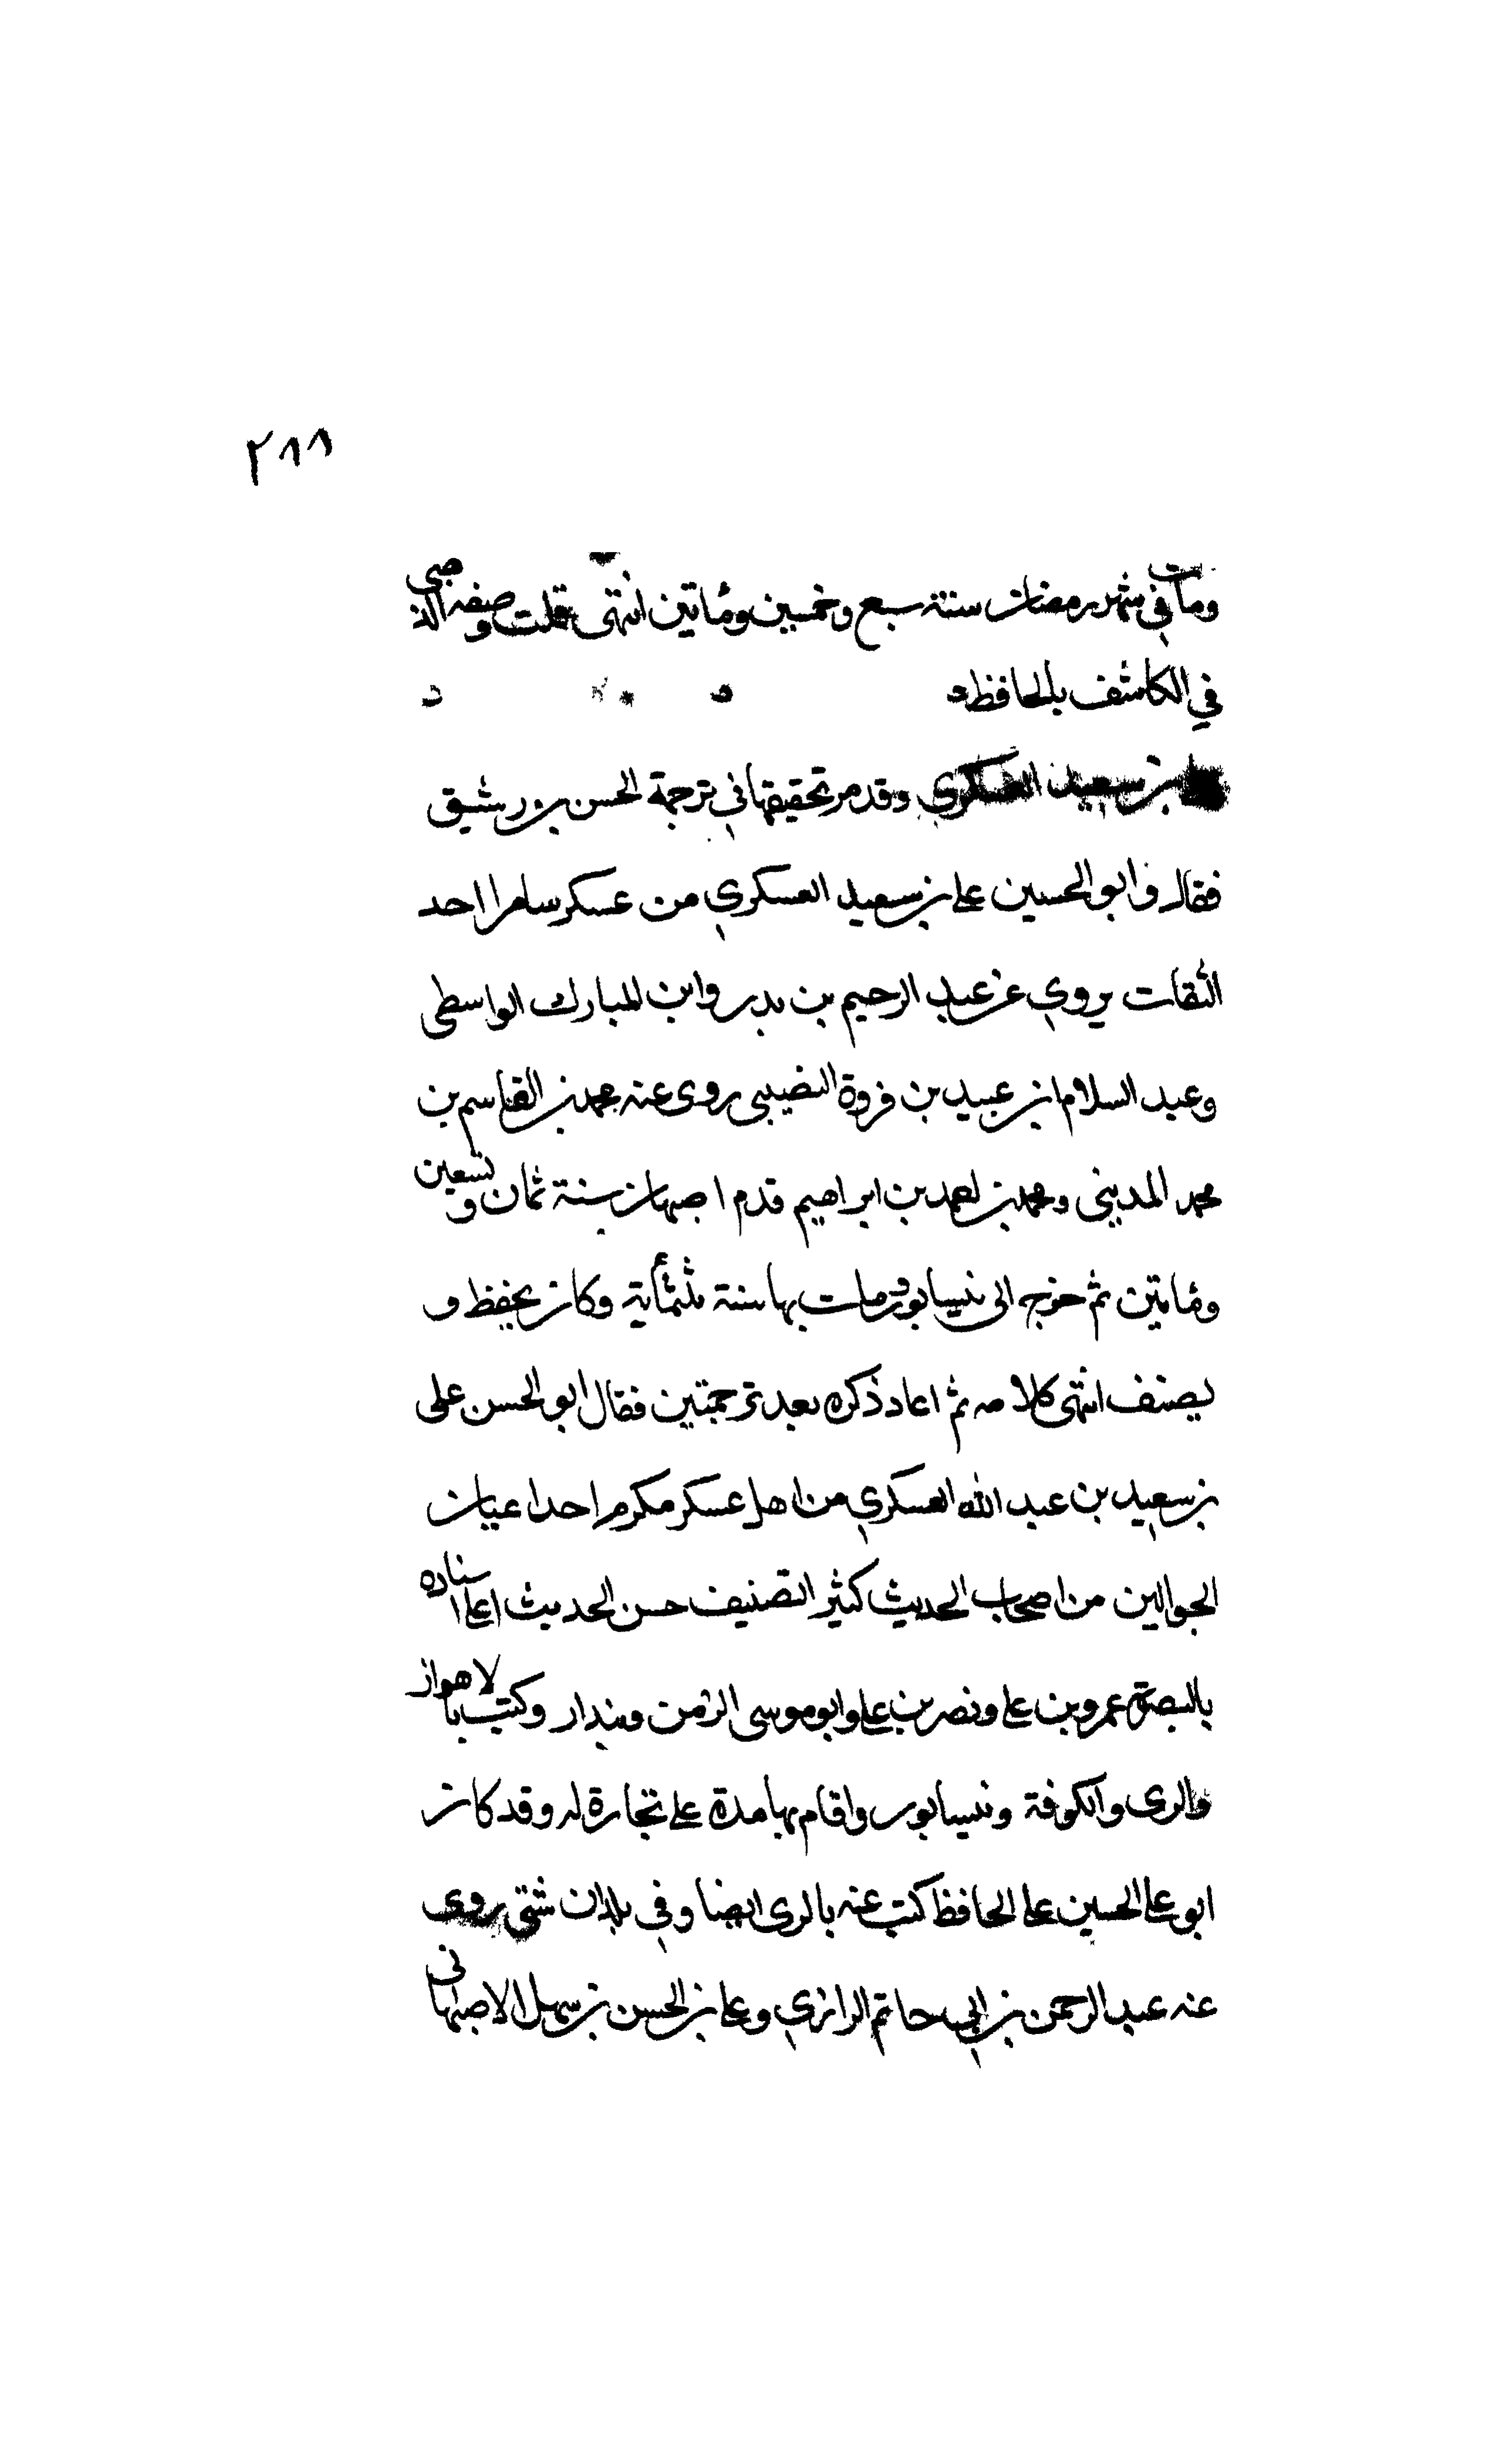 ٢٨٨
ومات في شهر رمضان سنة سبع وخمسين ومأتين انتهى قلت وصفه الذهبي
في الكاشف بالحافظ
بن سعيد العسكري وقد مر تحقيقها في ترجمة الحسن بن رشيق
فقال وابو الحسين علي بن سعيد العسكري من عسكر سامرا احد
الثقات يروي عن عبد الرحيم بن بدر وابن المبارك الواسطى
وعبد السلام بن عبيد بن فروة النصيبى روى عنه محمد بن القاسم بن
محمد المدينى ومحمد بن احمد بن ابراهيم قدم اصبهان سنة ثمان وتسعين
ومأتين ثم خرج الى نيسابور ومات بها سنة ثلثمأية وكان يحفظ و
يصنف انتهى كلامه ثم اعاد ذكره بعد ترجمتين فقال ابو الحسن على
بن سعيد بن عبد الله العسكري من اهل عسكر مكرم احد اعيان
الجوالين من اصحاب الحديث كثير التصنيف حسن الحديث اعلا اسناده
بالبصرة عمرو بن علي ونصر بن علي وابو موسى الزمن وبندار وكتب بالاهواز
والرى والكوفة ونيسابور واقام بها مدة على تجارة له وقد كان
ابو علي الحسين علي الحافظ كتب عنه بالرى ايضا وفي بلدان شتى روى
عنه عبد الرحمن بن ابي حاتم الرازي وعلي بن الحسن بن سهل الاصبهانى